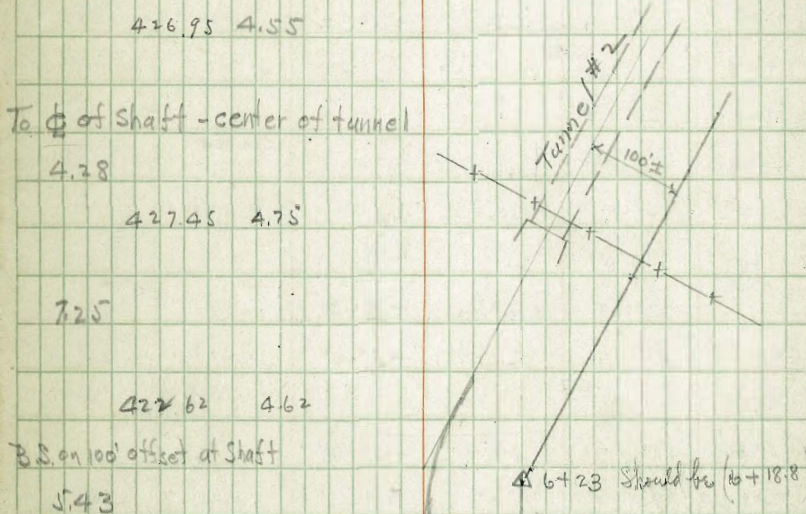 426.95 4.55
To ℄ of Shaft - center of tunnel
4.28
427.45 4.75
7.25
422 62 4.62
B.S. on 100' offset at Shaft
5.43
Tunnel #2
100'±
6+23 Should be (6+18.8